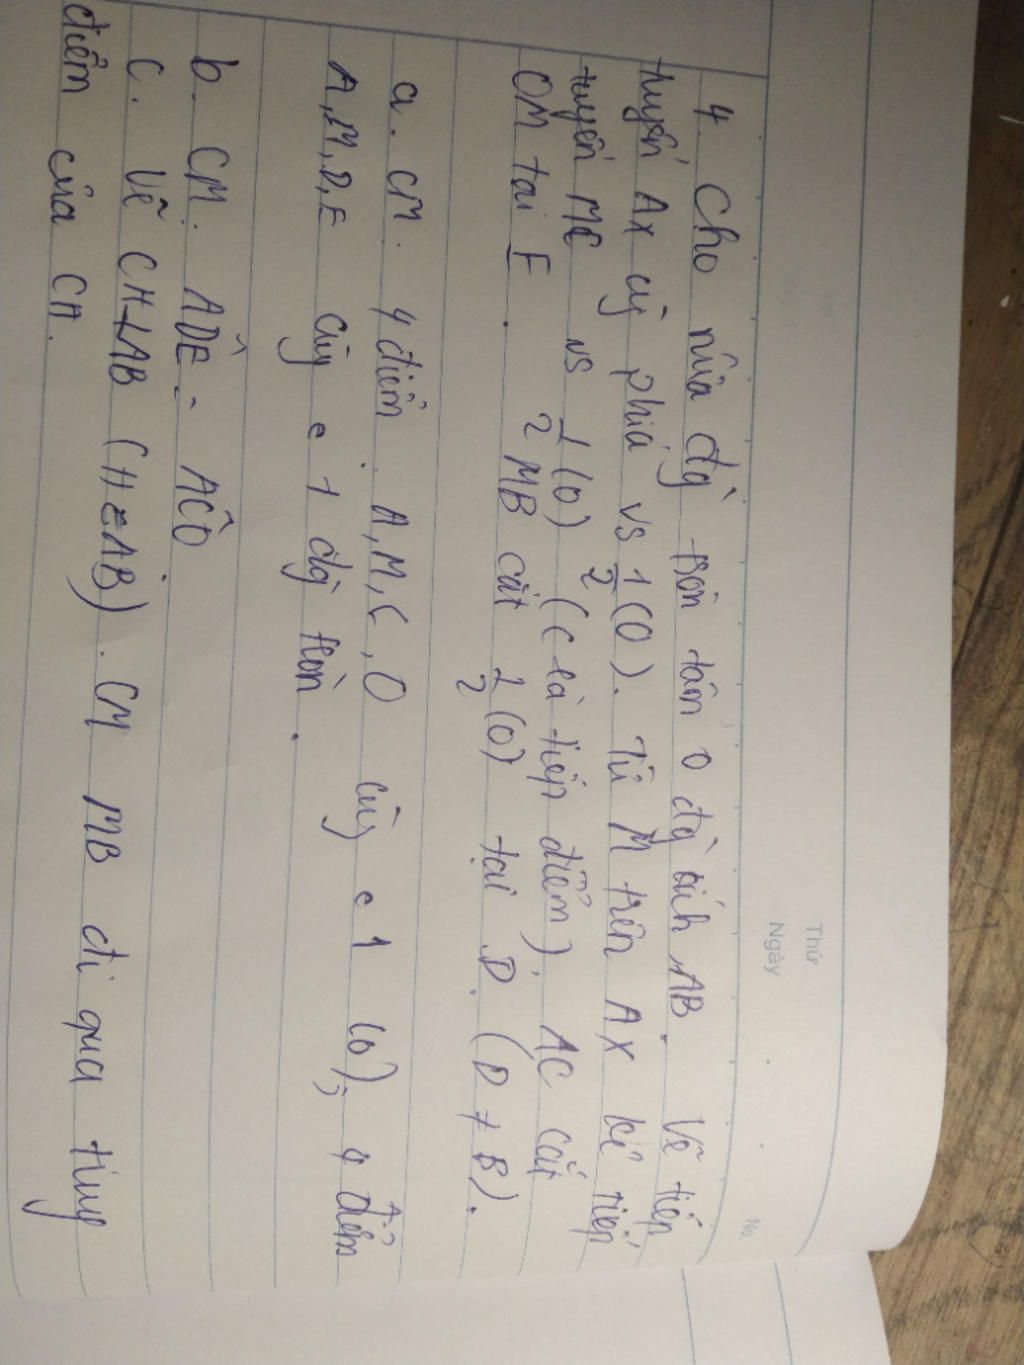 Thứ
Ngày
No.
4 Cho nửa đg tròn tâm O đg kính AB. Vẽ tiếp
tuyến Ax cùg phía vs 1/2 (O). Từ M trên Ax kẻ tiếp
tuyến MC vs 1/2 (O) (C là tiếp điểm). AC cắt
OM tại E. MB cắt 1/2 (O) tại D (D ≠ B).
a. CM. 4 điểm A, M, C, O cùg € 1 (O), 4 điểm
A, M, D, E cùg € 1 đg tròn.
b. CM. ADÊ = ACÔ
c. Vẽ CH⊥AB (H∈AB). CM MB đi qua trung
điểm của CH.